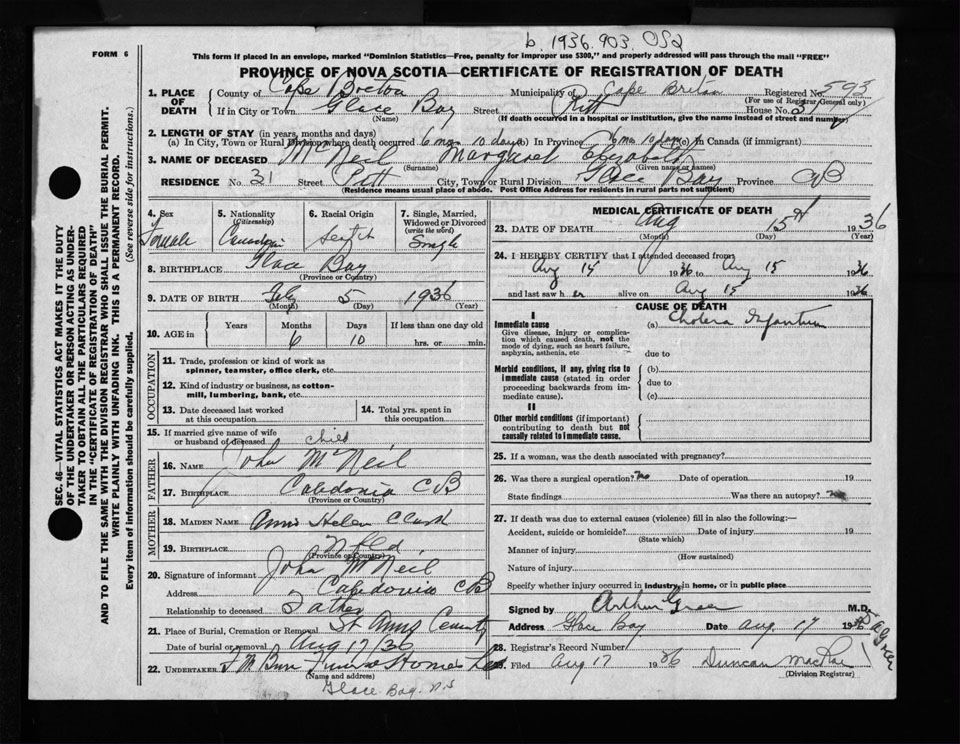 b. 1936. 903. 052
FORM 6
This form if placed in an envelope, marked "Dominion Statistics—Free, penalty for improper use $300," and properly addressed will pass through the mail "FREE"
PROVINCE OF NOVA SCOTIA—CERTIFICATE OF REGISTRATION OF DEATH
1. PLACE OF DEATH { County of Cape Breton Municipality of Cape Breton Registered No. 593
(For use of Registrar General only)
If in City or Town Glace Bay Street Pitt House No. 31
(Name) (If death occurred in a hospital or institution, give the name instead of street and number)
2. LENGTH OF STAY (in years, months and days)
(a) In City, Town or Rural Division where death occurred 6 mos 10 days (b) In Province 6 mos 10 days (c) in Canada (if immigrant)
3. NAME OF DECEASED McNeil Margaret Elizabeth
(Surname) (Given name or names)
RESIDENCE No. 31 Street Pitt City, Town or Rural Division Glace Bay Province CB
(Residence means usual place of abode. Post Office Address for residents in rural parts not sufficient)
SEC. 46—VITAL STATISTICS ACT MAKES IT THE DUTY
OF THE UNDERTAKER OR PERSON ACTING AS UNDER-
TAKER TO OBTAIN ALL THE PARTICULARS REQUIRED
IN THE "CERTIFICATE OF REGISTRATION OF DEATH"
AND TO FILE THE SAME WITH THE DIVISION REGISTRAR WHO SHALL ISSUE THE BURIAL PERMIT.
WRITE PLAINLY WITH UNFADING INK. THIS IS A PERMANENT RECORD.
Every item of information should be carefully supplied. (See reverse side for instructions.)
4. Sex 5. Nationality (Citizenship) 6. Racial Origin 7. Single, Married, Widowed or Divorced (write the word)
Female Canadian Scotch Single
8. BIRTHPLACE Glace Bay
(Province or Country)
9. DATE OF BIRTH Feb 5 1936
(Month) (Day) (Year)
10. AGE in Years Months Days If less than one day old
6 10 hrs. or min.
OCCUPATION
11. Trade, profession or kind of work as spinner, teamster, office clerk, etc.
12. Kind of industry or business, as cotton-mill, lumbering, bank, etc.
13. Date deceased last worked at this occupation
14. Total yrs. spent in this occupation
15. If married give name of wife or husband of deceased child
FATHER
16. NAME John McNeil
17. BIRTHPLACE Caledonia CB
(Province or Country)
MOTHER
18. MAIDEN NAME Annie Helen Clark
19. BIRTHPLACE Nfld.
(Province or Country)
20. Signature of informant John McNeil
Address Caledonia CB
Relationship to deceased Father
21. Place of Burial, Cremation or Removal St Anns Cemetry
Date of burial or removal Aug 17/36
22. UNDERTAKER Funeral Home
(Name and address)
Glace Bay. N.S
MEDICAL CERTIFICATE OF DEATH
23. DATE OF DEATH Aug 15th 1936
(Month) (Day) (Year)
24. I HEREBY CERTIFY that I attended deceased from
Aug 14 1936 to Aug 15 1936
and last saw her alive on Aug 15 1936
CAUSE OF DEATH
I
Immediate cause (a) Cholera Infantum
Give disease, injury or complication which caused death, not the mode of dying, such as heart failure, asphyxia, asthenia, etc
due to
Morbid conditions, if any, giving rise to immediate cause (stated in order proceeding backwards from immediate cause).
(b)
due to
(c)
II
Other morbid conditions (if important) contributing to death but not causally related to immediate cause.
25. If a woman, was the death associated with pregnancy?
26. Was there a surgical operation? no Date of operation 19
State findings Was there an autopsy? no
27. If death was due to external causes (violence) fill in also the following:—
Accident, suicide or homicide? Date of injury 19
(State which)
Manner of injury
(How sustained)
Nature of injury
Specify whether injury occurred in industry, in home, or in public place
Signed by Arthur M.D.
Address Glace Bay Date Aug 17 1936
28. Registrar's Record Number
29. Filed Aug 17 1936 Duncan MacRae
(Division Registrar)